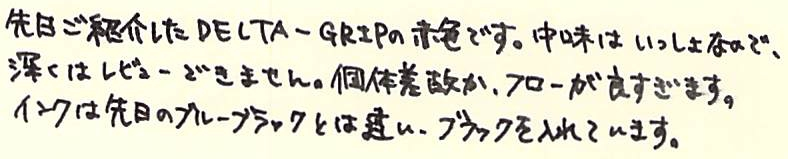 先日ご紹介したDELTA-GRIPの赤色です。中味はいっしょなので、
深くはレビューできません。個体差故か、フローが良すぎます。
インクは先日のブルーブラックとは違い、ブラックを入れています。